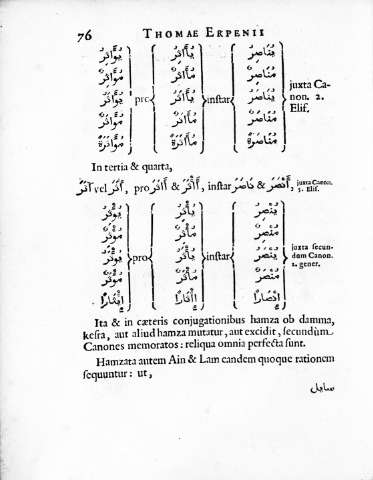 76 THOMAE ERPENII
يُوَاثِرُ يُأَاثِرُ يُنَاصِرُ
مُوَاثِرٌ مُأَاثِرٌ مُنَاصِرٌ
يُوَاثَرُ pro يُأَاثَرُ instar يُنَاصَرُ juxta Canon. 2. Elif.
مُوَاثَرٌ مُأَاثَرٌ مُنَاصَرٌ
مُوَاثَرَةٌ مُأَاثَرَةٌ مُنَاصَرَةٌ
In tertia & quarta,
آثَرَ vel أٰثَرَ, pro أَاثَرَ & أَأْثَرَ, instar نَاصَرَ & أَنْصَرَ, juxta Canon. 3. Elif.
يُوثِرُ يُأْثِرُ يُنْصِرُ
مُوثِرٌ مُأْثِرٌ مُنْصِرٌ
يُوثَرُ pro يُأْثَرُ instar يُنْصَرُ juxta secundum Canon. 2. gener.
مُوثَرٌ مُأْثَرٌ مُنْصَرٌ
إِيثَارًا إِأْثَارًا إِنْصَارًا
Ita & in cæteris conjugationibus hamza ob damma,
keſra, aut aliud hamza mutatur, aut excidit, ſecundùm
Canones memoratos: reliqua omnia perfecta ſunt.
Hamzata autem Ain & Lam eandem quoque rationem
ſequuntur: ut,
سايل